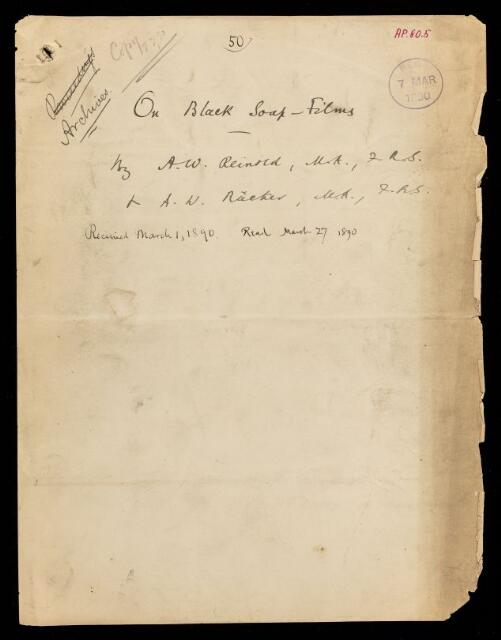 50
AP.60.5
Proceedings
Archives
7 MAR
1890
On Black Soap-Films
by A.W. Reinold, M.A., F.R.S.
& A. W. Rücker, M.A., F.R.S.
Received March 1, 1890. Read March 27 1890